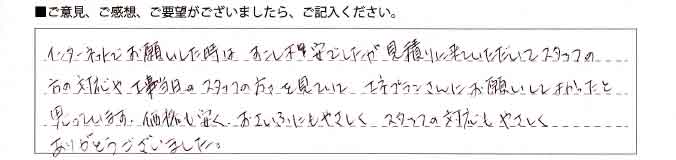 ■ご意見、ご感想、ご要望がございましたら、ご記入ください。
インターネットでお願いした時は すこし不安でしたが 見積りに来ていただいてスタッフの
方の対応や工事当日のスタッフの方々を見ていて エネプランさんにお願いしてよかったと
思っています。価格も安く、おさいふにもやさしく スタッフの対応もやさしく
ありがとうございました。